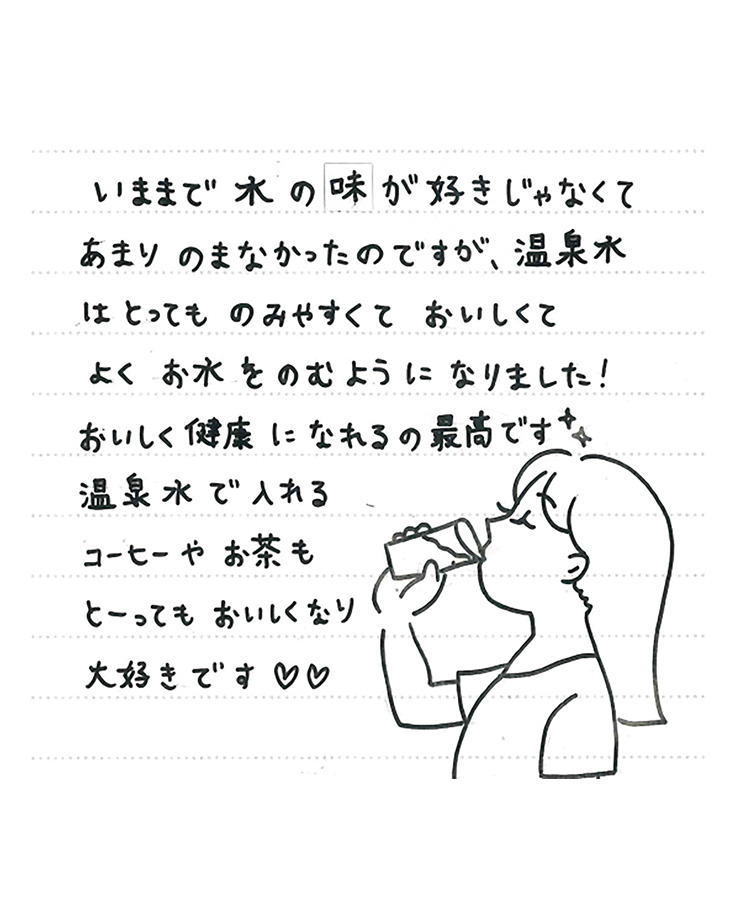 いままで 水 の 味 が 好きじゃなくて
あまり のまなかったのですが、温泉水
は とっても のみやすくて おいしくて
よく お水 を のむ ように なりました!
おいしく 健康 に なれるの 最高です
温泉水 で 入れる
コーヒーや お茶も
とーっても おいしくなり
大好きです♡♡